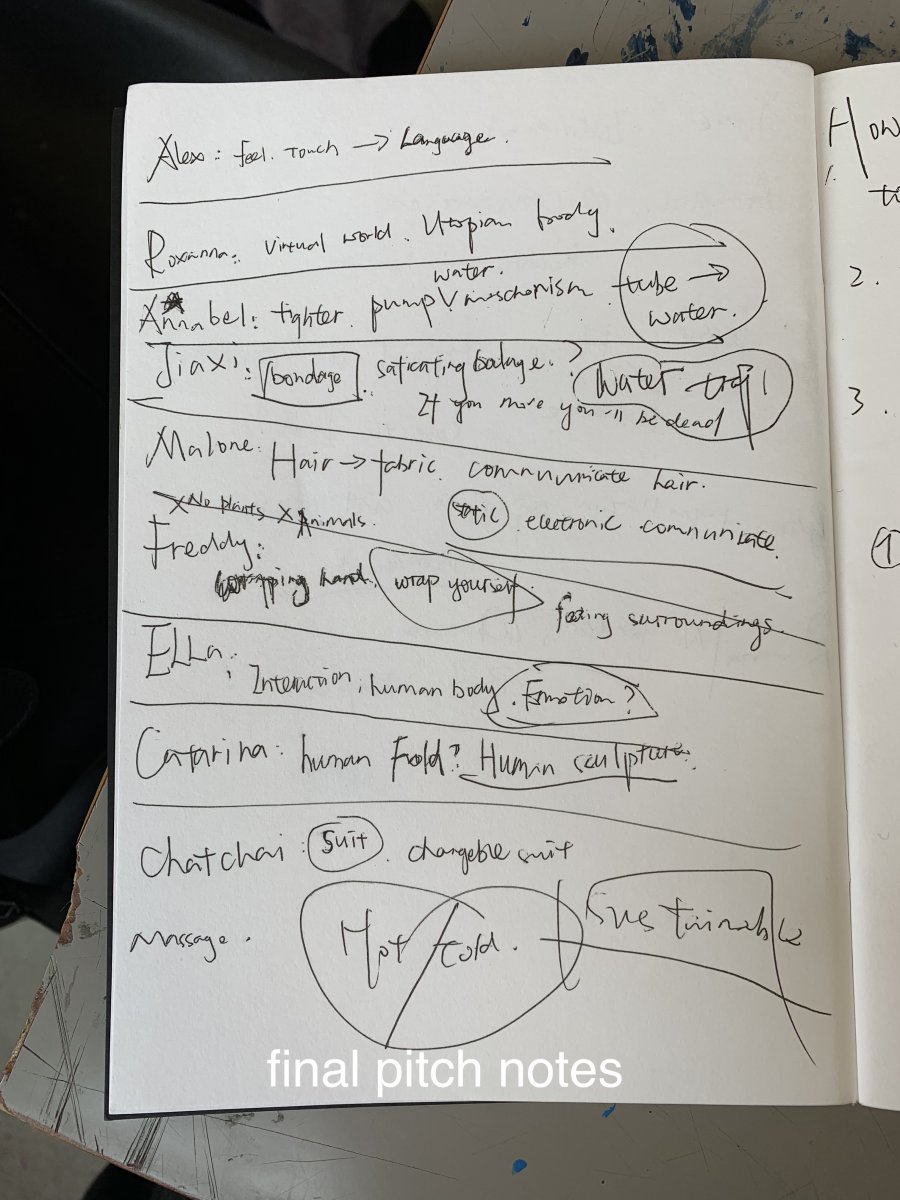 Alex: feel. Touch → Language.
Roxanna: Virtual world. Utopian body.
Annabel: tighter. pump water. mechanism. tube → water.
Jiaxi: bondage. ? Water
If you move you'll be dead
Malone: Hair → fabric. communicate hair.
X No plants X Animals.
static electronic communicate.
Freddy:
hand. wrap yourself. surroundings.
Ella: Interaction, human body. Emotion?
Catarina: human Fold? Human sculpture.
Chatchai: Suit. changeble suit
Massage. Hot / Cold. Sustainable
How
1.
2.
3.
①
final pitch notes